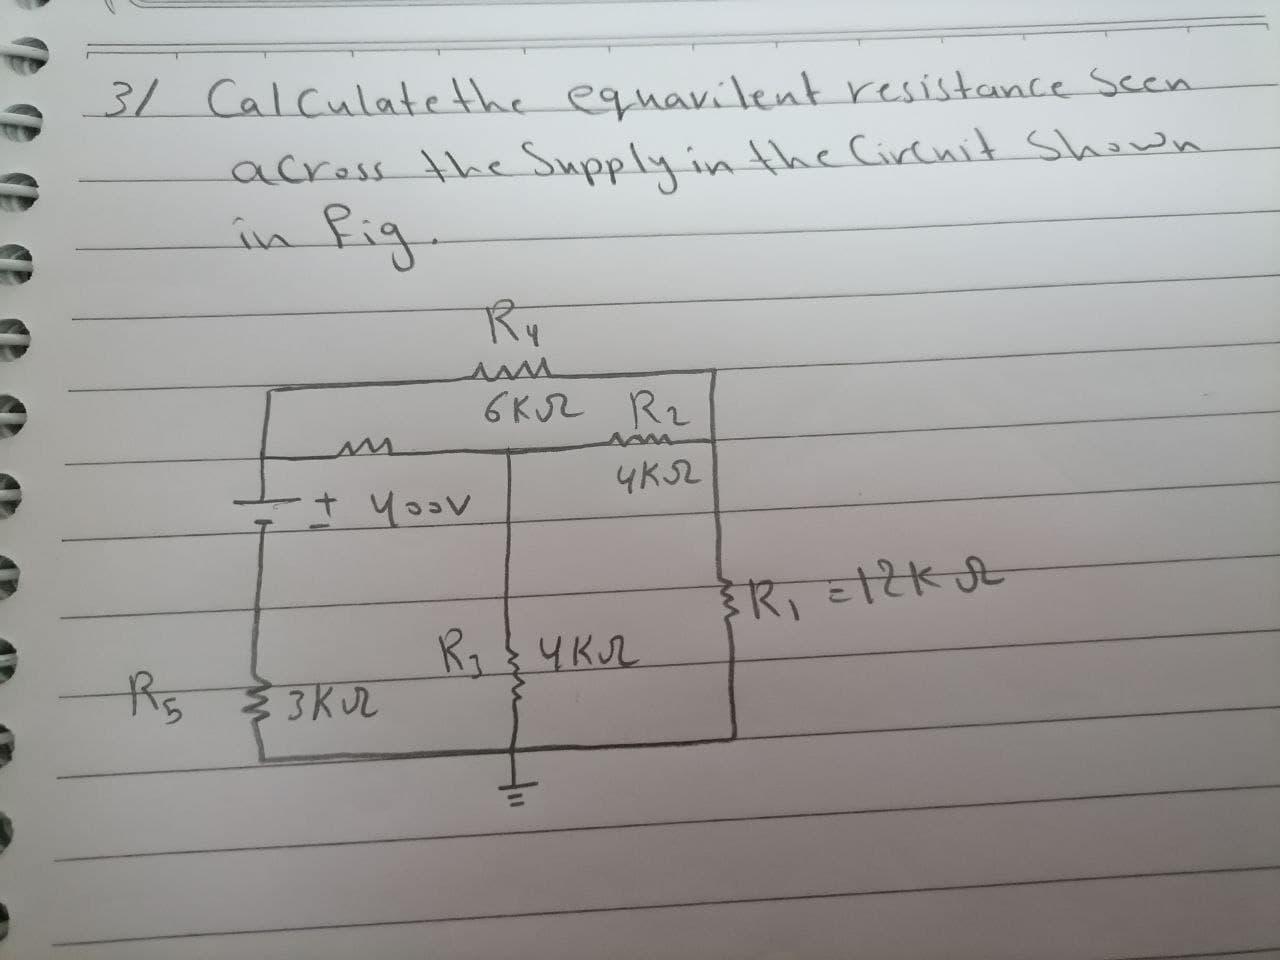 3/ Calculate the equavilent resistance seen
across the Supply in the Circuit Shown
in Fig.
R4
6KΩ R2
4KΩ
+ 400V
R1 = 12K Ω
R3 4KΩ
R5 3KΩ